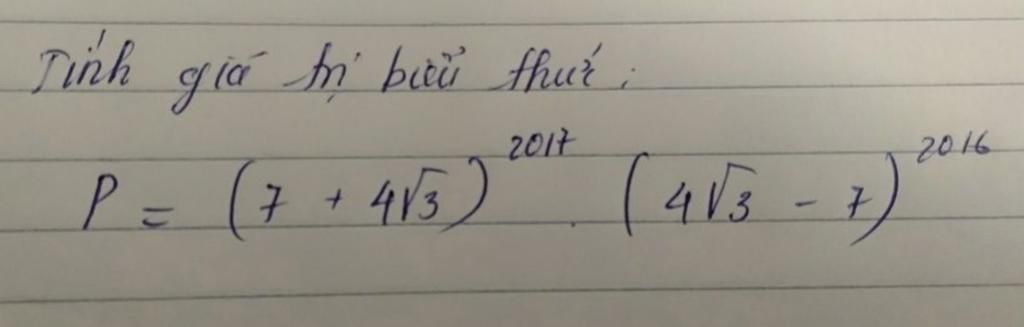 Tính giá trị biểu thức:
P = (7 + 4√3)^2017 . (4√3 - 7)^2016